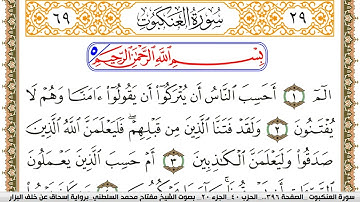 ٢٩ سُورَةُ الْعَنكَبُوتِ ٦٩
بِسْمِ اللَّهِ الرَّحْمَٰنِ الرَّحِيمِ ٥
الٓمٓ ١ أَحَسِبَ النَّاسُ أَن يُتْرَكُوٓا۟ أَن يَقُولُوٓا۟ ءَامَنَّا وَهُمْ لَا
يُفْتَنُونَ ٢ وَلَقَدْ فَتَنَّا الَّذِينَ مِن قَبْلِهِمْ ۖ فَلَيَعْلَمَنَّ اللَّهُ الَّذِينَ
صَدَقُوا۟ وَلَيَعْلَمَنَّ الْكَٰذِبِينَ ٣ أَمْ حَسِبَ الَّذِينَ يَعْمَلُونَ
سورة العنكبوت .. الصفحة ٣٩٦.. الحزب ٤٠ .. الجزء ٢٠.. بصوت الشيخ مفتاح محمد السلطني برواية إسحاق عن خلف البزار